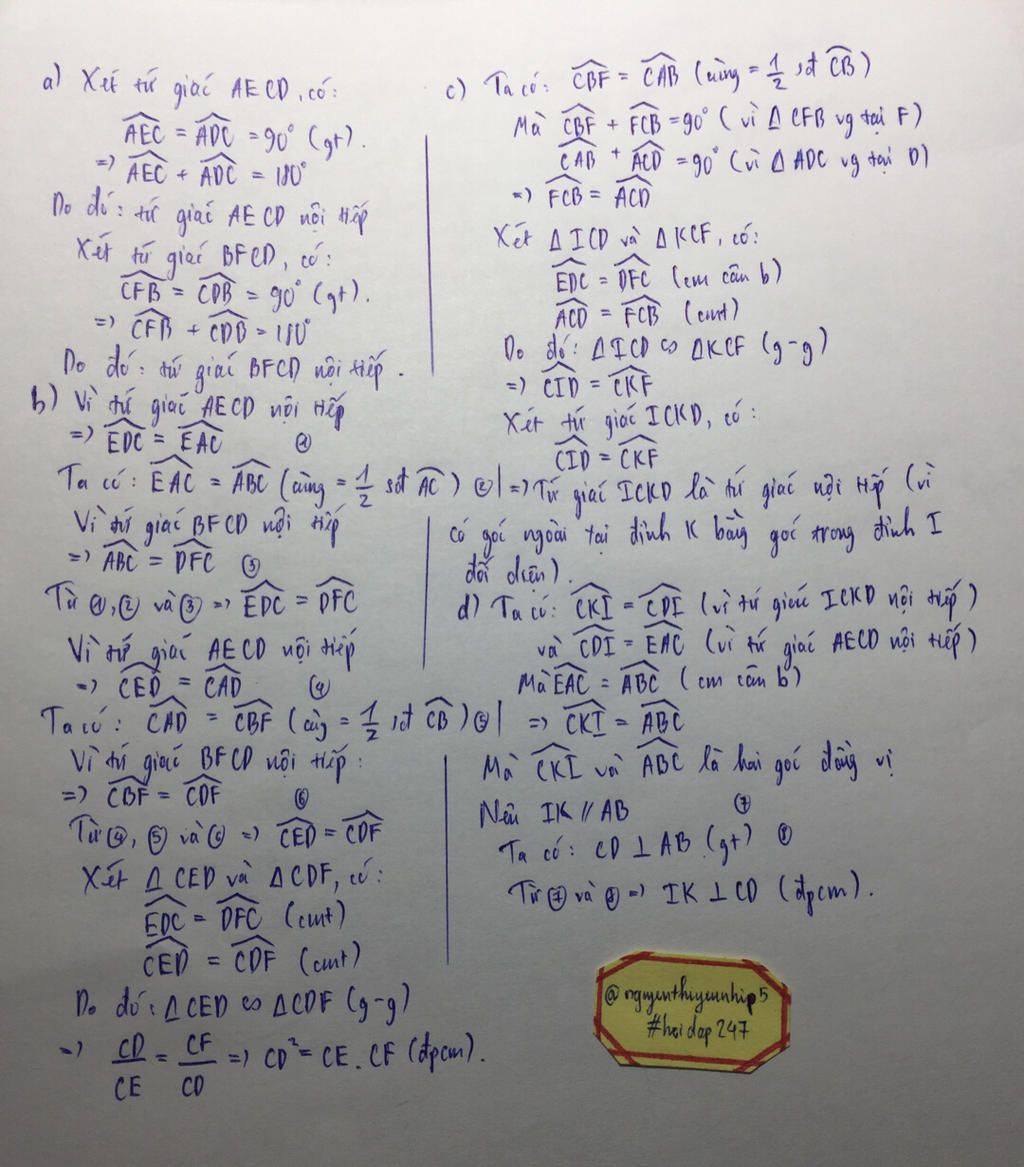 a) Xét tứ giác AECD, có:
\widehat{AEC} = \widehat{ADC} = 90° (gt).
=> \widehat{AEC} + \widehat{ADC} = 180°
Do đó: tứ giác AECD nội tiếp
Xét tứ giác BFCD, có:
\widehat{CFB} = \widehat{CDB} = 90° (gt).
=> \widehat{CFB} + \widehat{CDB} = 180°
Do đó: tứ giác BFCD nội tiếp.
b) Vì tứ giác AECD nội tiếp
=> \widehat{EDC} = \widehat{EAC} ①
Ta có: \widehat{EAC} = \widehat{ABC} (cùng = 1/2 sđ \widehat{AC}) ②
Vì tứ giác BFCD nội tiếp
=> \widehat{ABC} = \widehat{DFC} ③
Từ ①, ② và ③ => \widehat{EDC} = \widehat{DFC}
Vì tứ giác AECD nội tiếp
=> \widehat{CED} = \widehat{CAD} ④
Ta có: \widehat{CAD} = \widehat{CBF} (cùg = 1/2 sđ \widehat{CB}) ⑤
Vì tứ giác BFCD nội tiếp:
=> \widehat{CBF} = \widehat{CDF} ⑥
Từ ④, ⑤ và ⑥ => \widehat{CED} = \widehat{CDF}
Xét Δ CED và Δ CDF, có:
\widehat{EDC} = \widehat{DFC} (cmt)
\widehat{CED} = \widehat{CDF} (cmt)
Do đó: Δ CED ∽ Δ CDF (g-g)
=> CD/CE = CF/CD => CD² = CE . CF (đpcm).
c) Ta có: \widehat{CBF} = \widehat{CAB} (cùng = 1/2 sđ \widehat{CB})
Mà \widehat{CBF} + \widehat{FCB} = 90° (vì Δ CFB vg tại F)
\widehat{CAB} + \widehat{ACD} = 90° (vì Δ ADC vg tại D)
=> \widehat{FCB} = \widehat{ACD}
Xét Δ ICD và Δ KCF, có:
\widehat{EDC} = \widehat{DFC} (cm câu b)
\widehat{ACD} = \widehat{FCB} (cmt)
Do đó: Δ ICD ∽ Δ KCF (g-g)
=> \widehat{CID} = \widehat{CKF}
Xét tứ giác ICKD, có:
\widehat{CID} = \widehat{CKF}
=> Tứ giác ICKD là tứ giác nội tiếp (vì
có góc ngoài tại đỉnh K bằng góc trong đỉnh I
đối diện).
d) Ta có: \widehat{CKI} = \widehat{CDI} (vì tứ giác ICKD nội tiếp)
và \widehat{CDI} = \widehat{EAC} (vì tứ giác AECD nội tiếp)
Mà \widehat{EAC} = \widehat{ABC} (cm câu b)
=> \widehat{CKI} = \widehat{ABC}
Mà \widehat{CKI} và \widehat{ABC} là hai góc đồng vị
Nên IK // AB ⑦
Ta có: CD ⊥ AB (gt) ⑧
Từ ⑦ và ⑧ => IK ⊥ CD (đpcm).
@nguyenthiyennhip5
#hoidap247